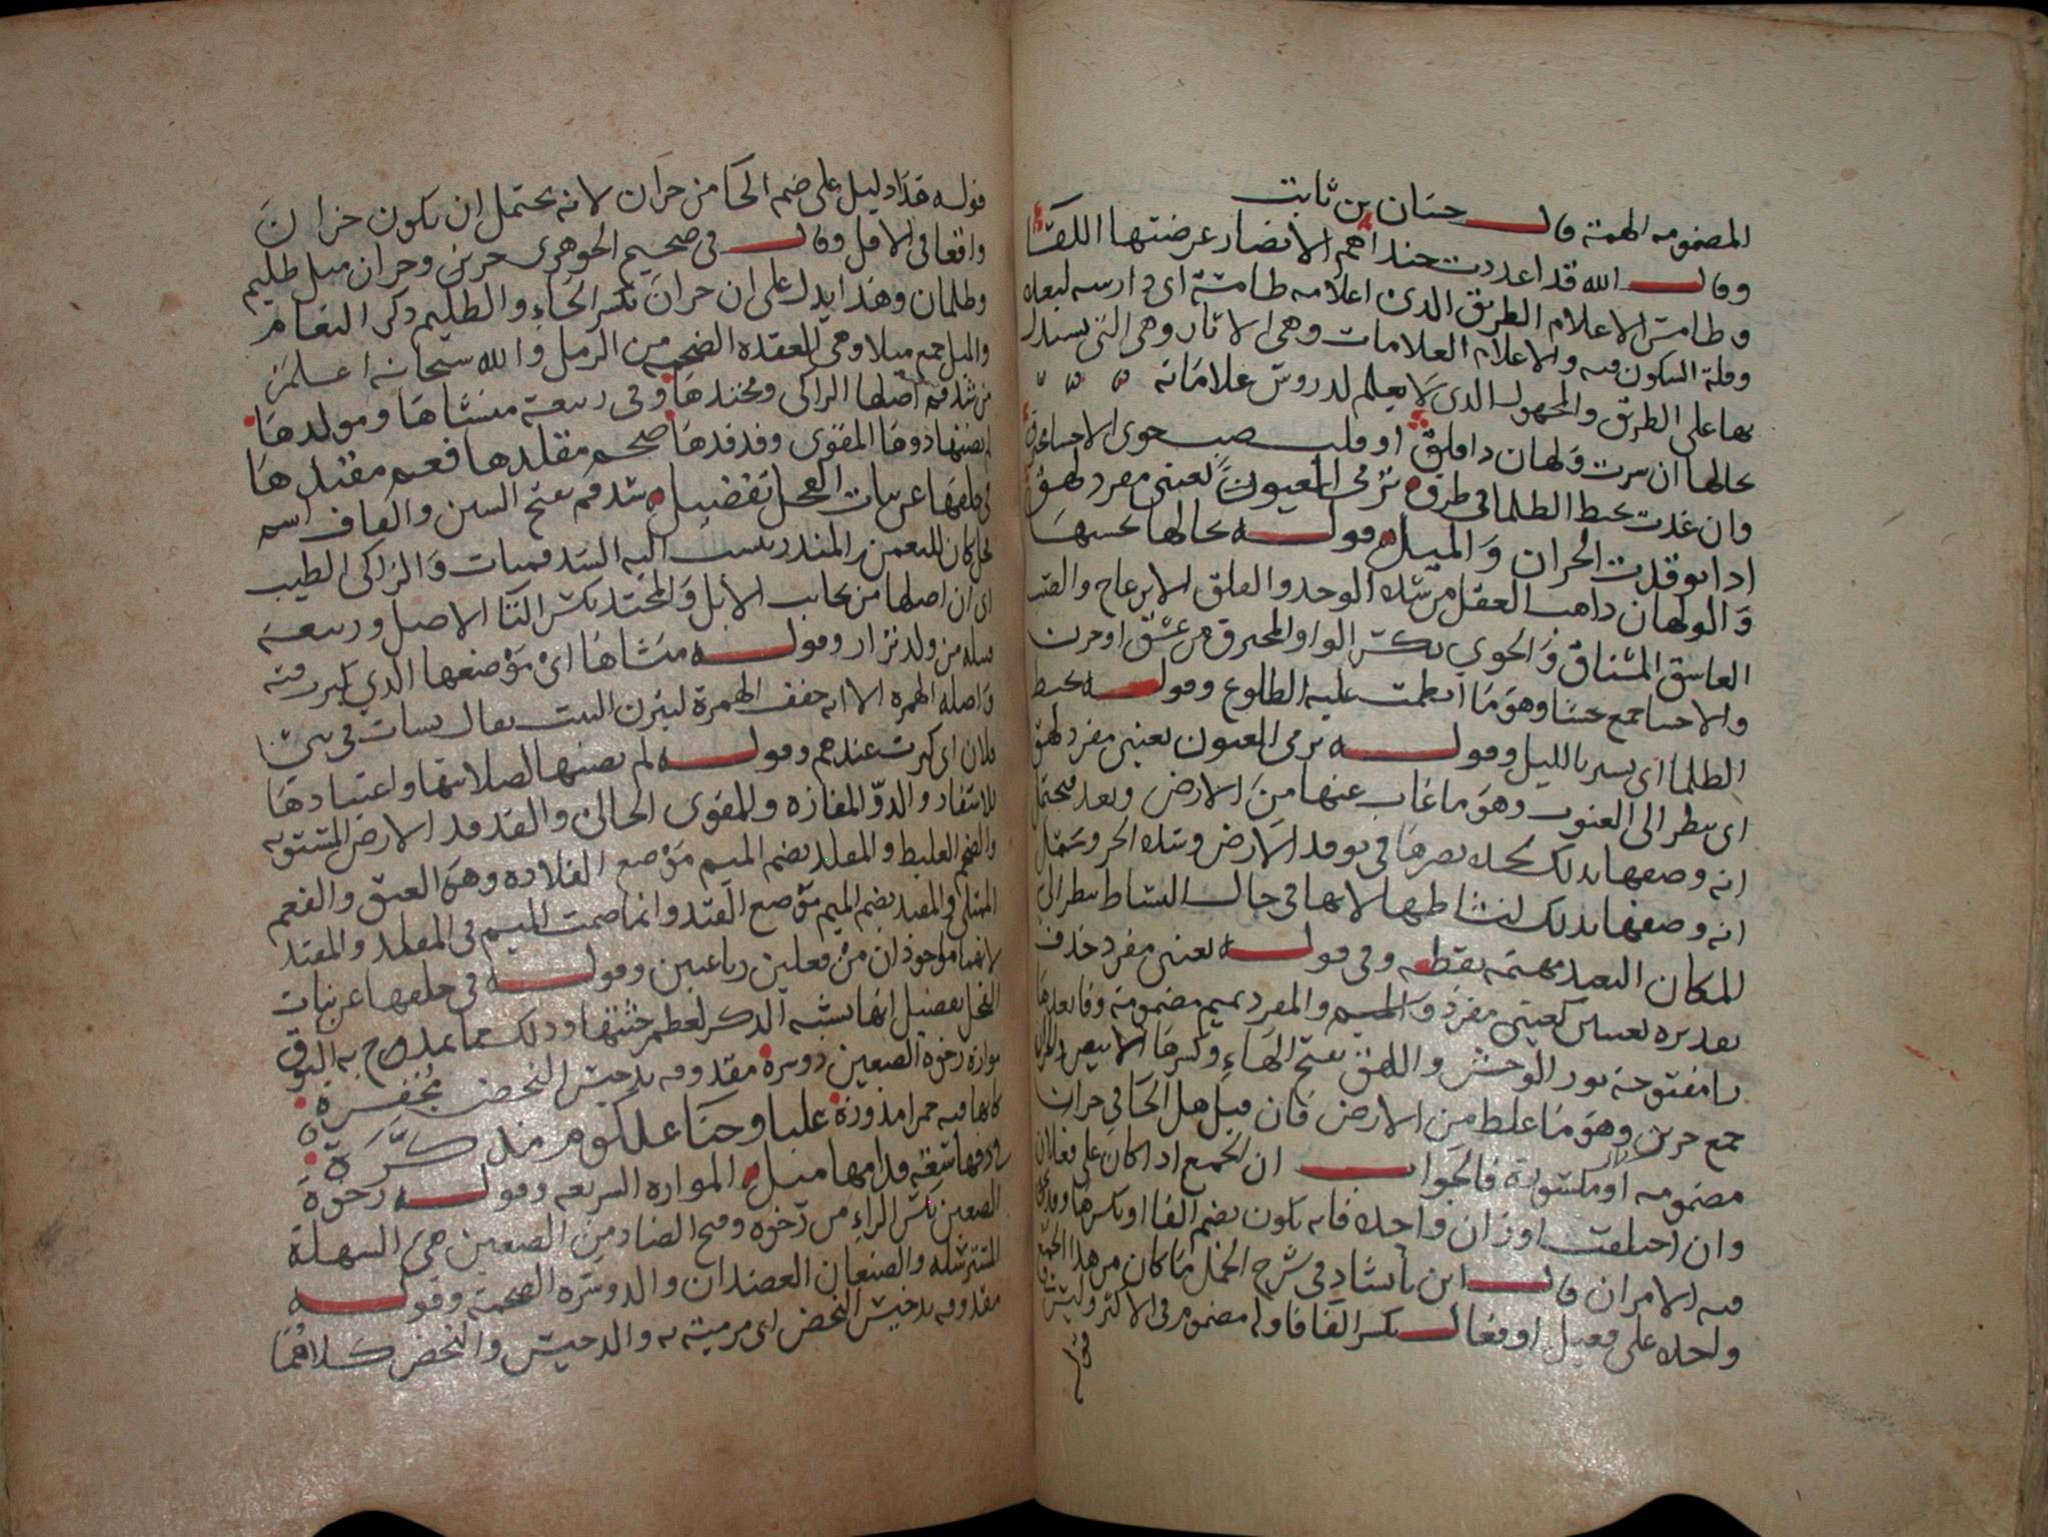 المضمومه الهمة قال حسان بن ثابت
وقال الله قد اعددت جندا هم الانصار عرضتها اللقا
وطامس الاعلام الطريق الدى اعلامه طامسة اى دارسه لبعده
وقلة السكون فيه والاعلام العلامات وهى الاثار وهى التى يستدل
بها على الطريق والمجهول الدى لا يعلم لدروس علاماته
تخالها ان سرت ولهان دا قلق او قلب صب حوى الاحسا محترق
وان غدت تخبط الظلما فى طرق ترمى العيون بعينى مفرد لهق
ادا توقدت الحران والميل قوله تخالها تحسبها
والولهان داهب العقل من شده الوجد والقلق الانزعاج والصب
العاسق المشتاق والجوي بكسر الواو المحترق من عشق او حزن
والاحسا جمع حشا وهو ما انطمت عليه الضلوع وقوله تخبط
الظلما اى تسير بالليل وقوله ترمى العيوب بعينى مفرد لهق
اى تنظر الى العيوب وهو ما غاب عنها من الارض وبعد فيحتمل
انه وصفها بدلك لحده بصرها فى توقد الارض وشده الحر ويحتمل
انه وصفها بدلك لنشاطها لانها فى حال النشاط تنظر الى
المكان البعيد مهتمة بقطعه وفى قوله بعينى مفرد حذف
تقديره بعينين كعينى مفرد والميم والمفرد بميم مضمومة وفا بعدها
را مفتوحة ثور الوحش واللهق بفتح الهاء وكسرها الابيض والحزان
جمع حزيز وهو ما غلط من الارض فان قيل هل الحا فى حزان
مضمومه او مكسورة فالجواب ان الجمع ادا كان على فعلان
وان اختلفت اوزان واحده فانه يكون بضم الفا او بكسرها وقد يجى
فيه الامران قال ابن بابشاذ فى شرح الجمل ما كان من هذا الجمع
واحده على فعيل او فعال بكسر الفا فاوله مضموم فى الاكثر وليس فى
قوله
قوله هذا دليل على ضم الحا من حزان لانه يحتمل ان يكون حزان
واقعا فى الاقل وقال فى صحيح الجوهرى حزيز وحزان مثل ظليم
وظلمان وهذا يدل على ان حزان بكسر الحاء والظليم دكر النعام
والميل جمع ميلا وهى العقده الضخمه من الرمل والله سبحانه اعلم
من شدقم اصلها الزاكى ومحتدها وفى ربيعة منشاها ومولدها
لم يضنها دوها المقوى وفدفدها ضخم مقلدها فعم مقيدها
فى خلقها عن بنات الفحل تفضيل شدقم بفتح الشين والقاف اسم
فحل كان للنعمن بن المنذر ينسب اليه الشدقميات والزاكى الطيب
اى ان اصلها من نجائب الابل والمحتد بكسر التا الاصل وربيعة
قبيله من ولد نزار وقوله منشاها اى موضعها الدي كبرت فيه
واصله الهمزه الا انه خفف الهمزة ليتزن البيت يقال نشات فى بنى
فلان اى كبرت عندهم وقوله لم يضنها لصلابتها واعتيادها
للاسفار والدو المفازه والمقوى الخالى والفدفد الارض المستويه
والضخم الغليظ والمقلد بضم الميم موضع القلاده وهى العنق والفعم
الممتلى والمقيد بضم الميم موضع القيد وانما ضمت الميم فى المقلد والمقيد
لانهما ماخوذان من فعلين رباعيين وقوله فى خلقها عن بنات
الفحل تفضيل انها تشبه الدكر لعظم جثتها ودلك مما يمدح به النوق
مواره رخوة الضبعين دوسرة مقدوفه بدخيس النحض مجفرة
كانها فيه حمرا مذوزة علبا وجنا علكوم مذكرة
فى دفها سعة قدامها ميل المواره السريعه وقوله رخوة
الضبعين بكسر الراء من رخوه وفتح الضاد من الضبعين هى السهلة
المسترسله والضبعان العضدان والدوسره الضخمة وقوله
مقدوفه بدخيس النحض اى مرمية به والدخيس والنحض كلاهما